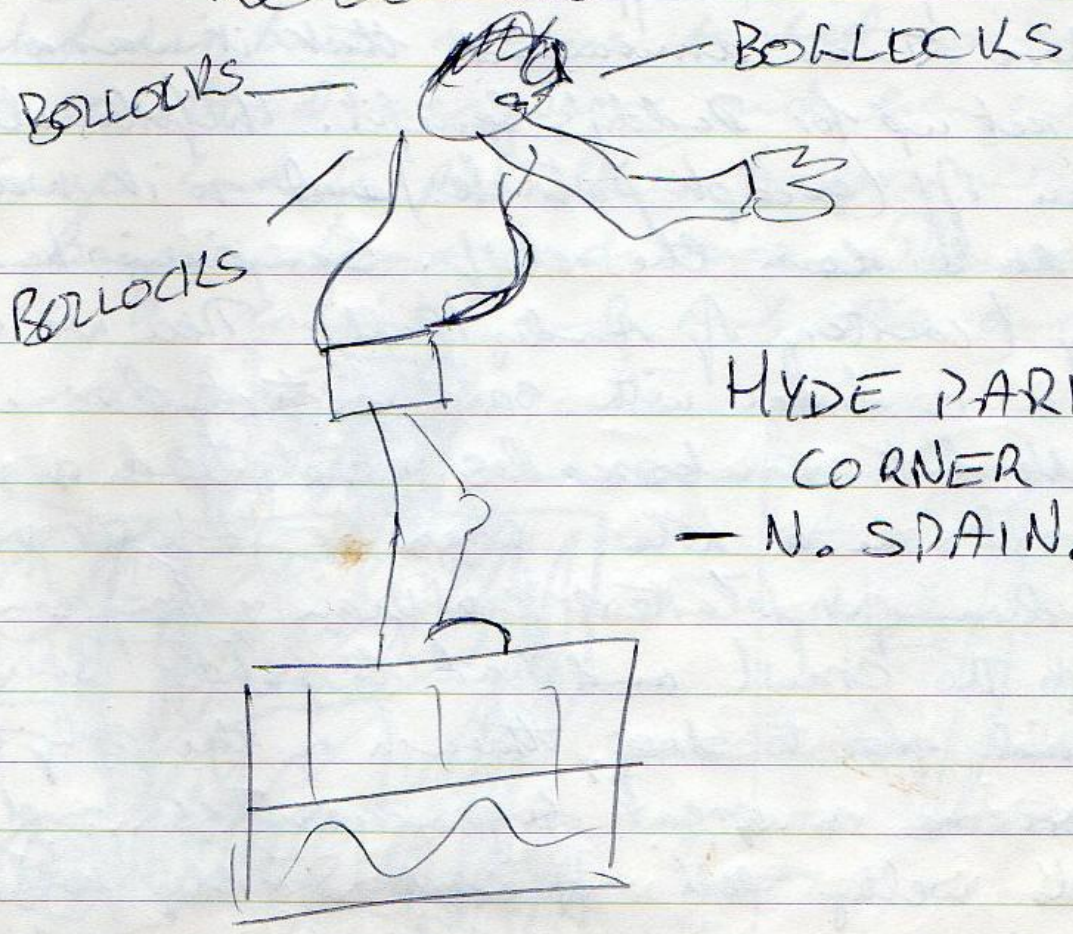 BOLLOCKS
BOLLOCKS
BOLLOCKS
HYDE PARK
CORNER
- N. SPAIN.